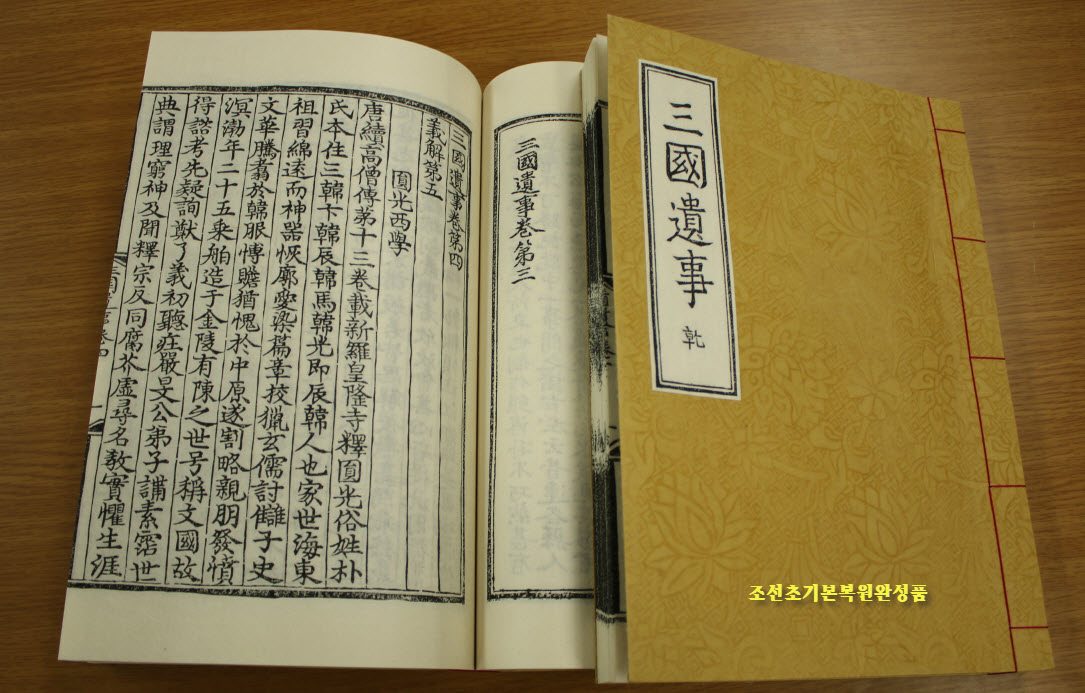 三國遺事
乾
三國遺事卷第三
三國遺事卷第四
義解第五
圓光西學
唐續高僧傳第十三卷載新羅皇隆寺釋圓光俗姓朴
氏本住三韓卞韓辰韓馬韓光即辰韓人也家世海東
祖習綿遠而神器恢廓愛染篇章校獵玄儒討讎子史
文華騰翥於韓服博贍猶愧於中原遂割略親朋發憤
溟渤年二十五乘舶造于金陵有陳之世号稱文國故
得諮考先疑詢猷了義初聽莊嚴旻公弟子講素霑世
典謂理窮神及聞釋宗反同腐芥虛尋名教實懼生涯
조선초기본복원완성품